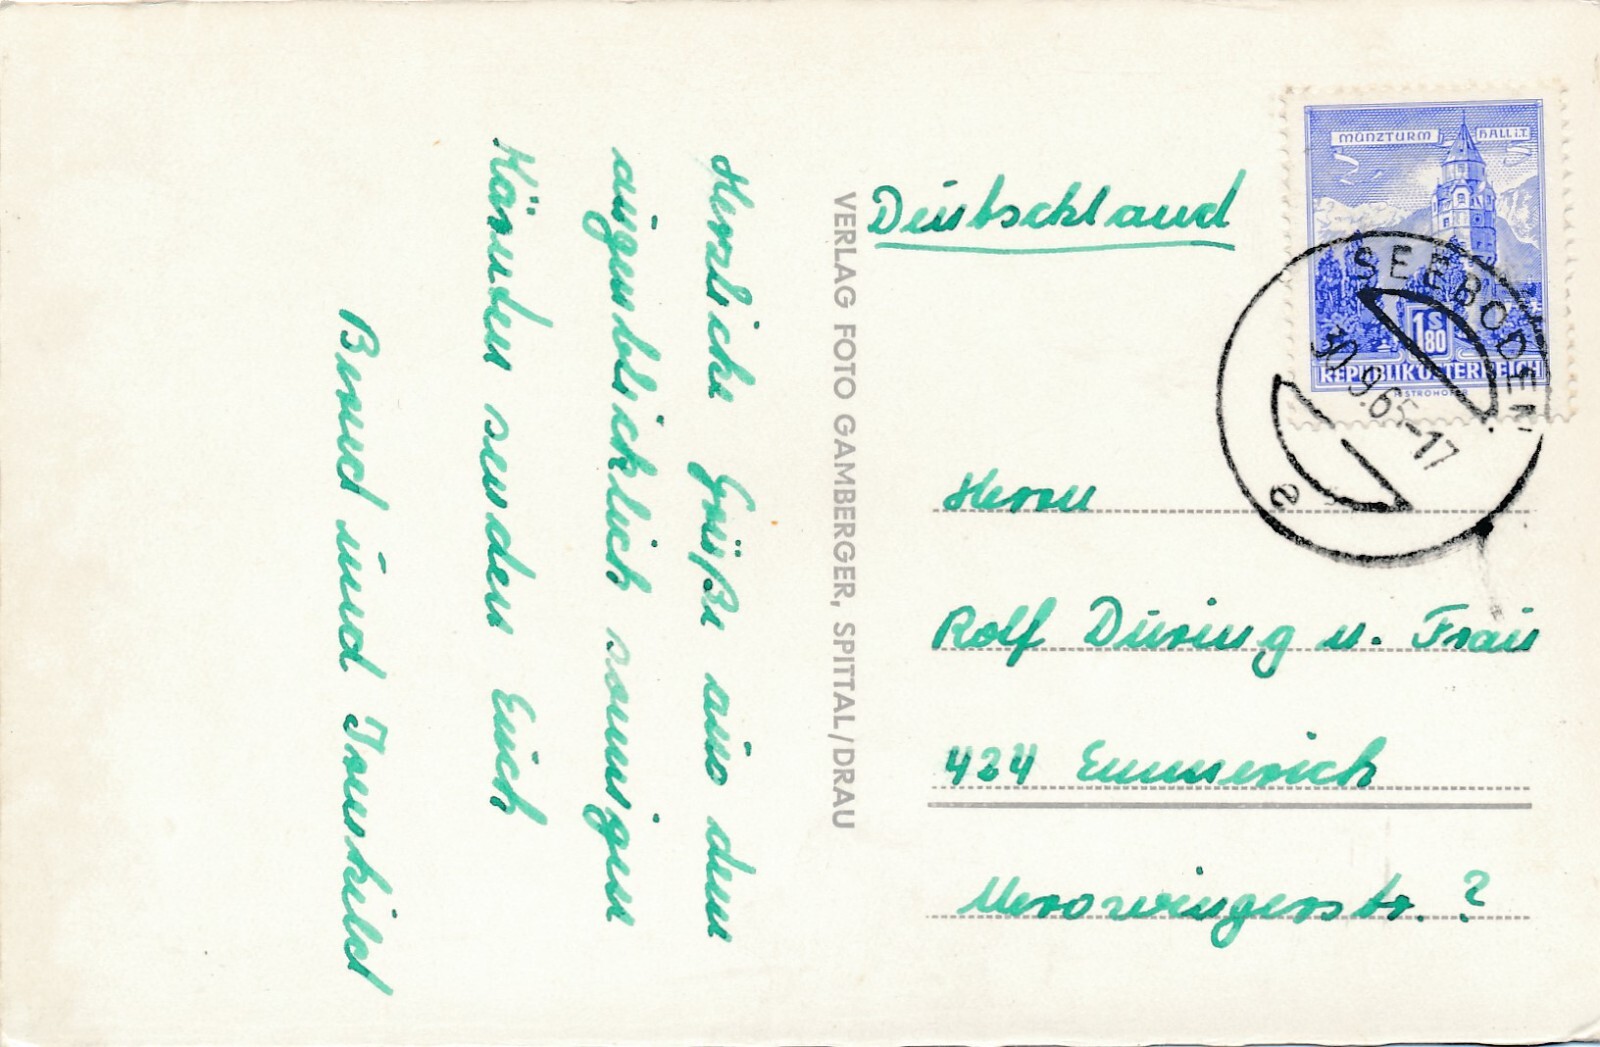 Herzliche Grüße aus dem
augenblicklich sonnigen
Kärnten senden Euch
Bernd und Irmhild
VERLAG FOTO GAMBERGER, SPITTAL/DRAU
Deutschland
MÜNZTURM HALL i.T.
1 S 80
REPUBLIK ÖSTERREICH
SEEBODEN
30.9.65-17
a
Herrn
Rolf Düring u. Frau
424 Emmerich
Merowingerstr. ?